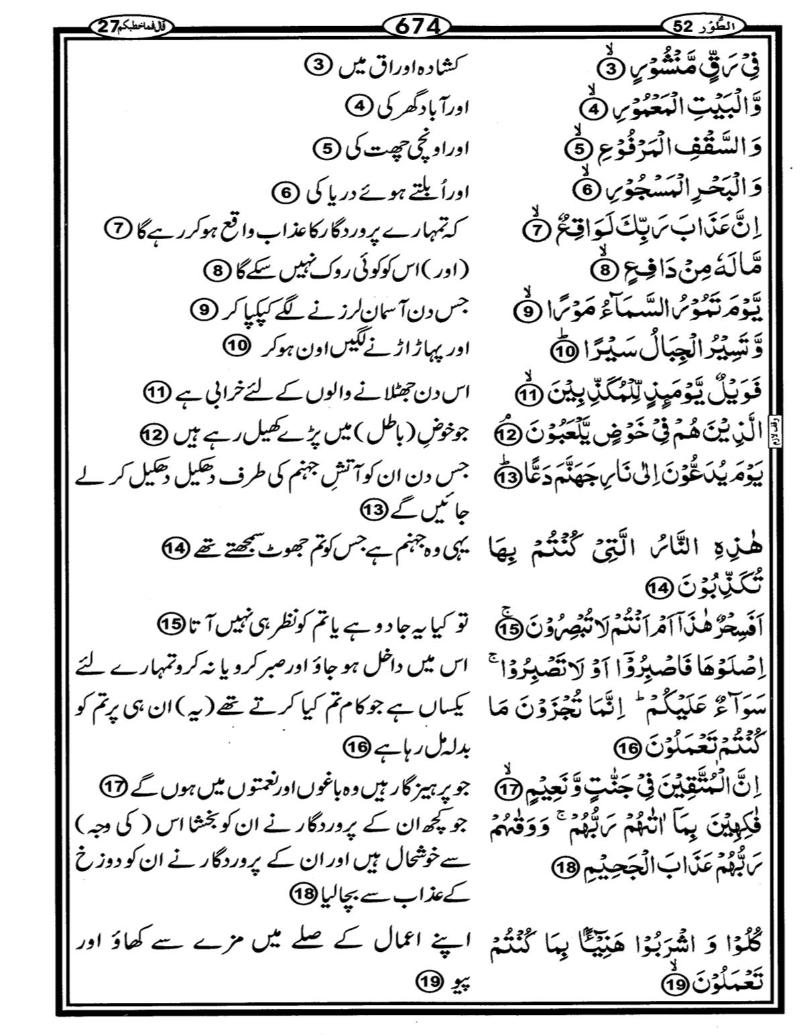 الطُّوْر 52 674 قال فما خطبكم 27
فِیْ رَقٍّ مَّنْشُوْرٍۙ ③ کشادہ اوراق میں ③
وَّالْبَیْتِ الْمَعْمُوْرِۙ ④ اور آباد گھر کی ④
وَالسَّقْفِ الْمَرْفُوْعِۙ ⑤ اور اونچی چھت کی ⑤
وَالْبَحْرِ الْمَسْجُوْرِۙ ⑥ اور اُبلتے ہوئے دریا کی ⑥
اِنَّ عَذَابَ رَبِّكَ لَوَاقِعٌۙ ⑦ کہ تمہارے پروردگار کا عذاب واقع ہو کر رہے گا ⑦
مَّا لَهٗ مِنْ دَافِعٍۙ ⑧ (اور) اس کو کوئی روک نہیں سکے گا ⑧
یَّوْمَ تَمُوْرُ السَّمَآءُ مَوْرًاۙ ⑨ جس دن آسمان لرزنے لگے کپکپا کر ⑨
وَّ تَسِیْرُ الْجِبَالُ سَیْرًاؕ ⑩ اور پہاڑ اڑنے لگیں اون ہو کر ⑩
فَوَیْلٌ یَّوْمَىِٕذٍ لِّلْمُكَذِّبِیْنَۙ ⑪ اس دن جھٹلانے والوں کے لئے خرابی ہے ⑪
الَّذِیْنَ هُمْ فِیْ خَوْضٍ یَّلْعَبُوْنَۘ ⑫ جو خوضِ (باطل) میں پڑے کھیل رہے ہیں ⑫
وقف لازم
یَوْمَ یُدَعُّوْنَ اِلٰی نَارِ جَهَنَّمَ دَعًّاؕ ⑬ جس دن ان کو آتشِ جہنم کی طرف دھکیل دھکیل کر لے
جائیں گے ⑬
هٰذِهِ النَّارُ الَّتِیْ كُنْتُمْ بِهَا یہی وہ جہنم ہے جس کو تم جھوٹ سمجھتے تھے ⑭
تُكَذِّبُوْنَ ⑭
اَفَسِحْرٌ هٰذَاۤ اَمْ اَنْتُمْ لَا تُبْصِرُوْنَۚ ⑮ تو کیا یہ جادو ہے یا تم کو نظر ہی نہیں آتا ⑮
اِصْلَوْهَا فَاصْبِرُوْۤا اَوْ لَا تَصْبِرُوْاۚ اس میں داخل ہو جاؤ اور صبر کرو یا نہ کرو تمہارے لئے
سَوَآءٌ عَلَیْكُمْؕ اِنَّمَا تُجْزَوْنَ مَا یکساں ہے جو کام تم کیا کرتے تھے (یہ) ان ہی پر تم کو
كُنْتُمْ تَعْمَلُوْنَ ⑯ بدلہ مل رہا ہے ⑯
اِنَّ الْمُتَّقِیْنَ فِیْ جَنّٰتٍ وَّنَعِیْمٍۙ ⑰ جو پرہیزگار ہیں وہ باغوں اور نعمتوں میں ہوں گے ⑰
فٰكِهِیْنَ بِمَاۤ اٰتٰىهُمْ رَبُّهُمْۚ وَوَقٰىهُمْ جو کچھ ان کے پروردگار نے ان کو بخشا اس (کی وجہ)
رَبُّهُمْ عَذَابَ الْجَحِیْمِ ⑱ سے خوشحال ہیں اور ان کے پروردگار نے ان کو دوزخ
کے عذاب سے بچالیا ⑱
كُلُوْا وَ اشْرَبُوْا هَنِیْٓـًٔۢا بِمَا كُنْتُمْ اپنے اعمال کے صلے میں مزے سے کھاؤ اور
تَعْمَلُوْنَۙ ⑲ پیو ⑲